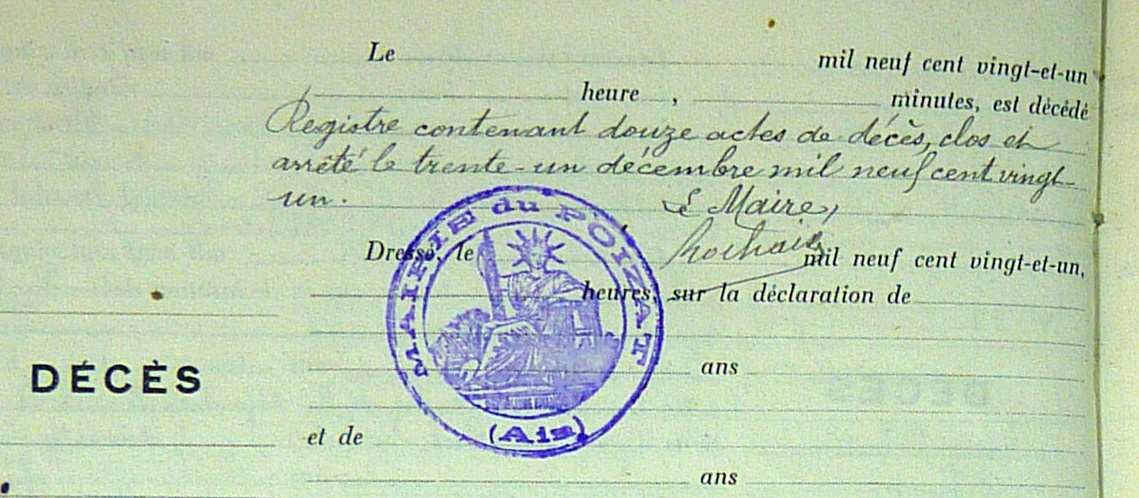 Le mil neuf cent vingt-et-un
heure , minutes, est décédé
Registre contenant douze actes de décès, clos et
arrêté le trente-un décembre mil neuf cent vingt-
un. Le Maire,
Dressé, le mil neuf cent vingt-et-un,
heures, sur la déclaration de
MAIRIE du POIZAT
(Ain)
ans
DÉCÈS
et de
ans